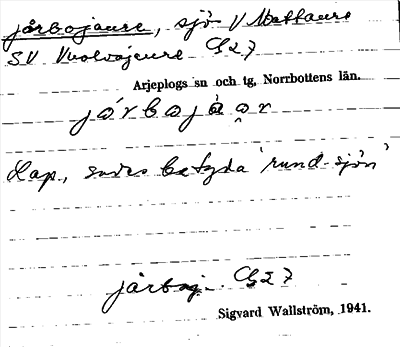 jårbojaure, sjö V Mattaure
SV Vuolvojaure G27
Arjeplogs sn och tg, Norrbottens län.
Lap., anses betyda 'rund-sjön'
G27
Sigvard Wallström, 1941.